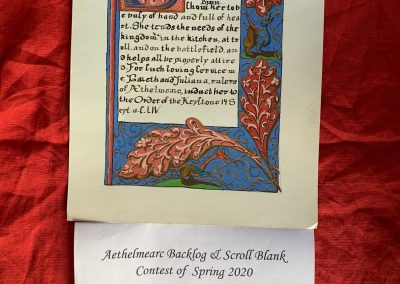 her to b
e busy of hand and full of hea
rt. She tends the needs of the
kingdom in the kitchen, at tr
oll, and on the battlefield, an
d helps all be properly attire
d. For such loving service we
Gareth and Juliana, rulers
of Æthelmearc, induct her to
the Order of the Keystone 14 S
ept. a.s. LIV
Aethelmearc Backlog & Scroll Blank
Contest of Spring 2020